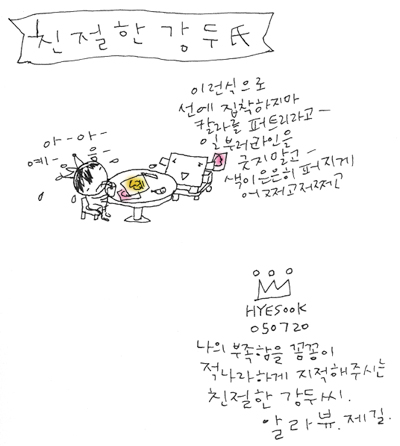 친절한 강두氏
이런식으로
선에 집착하지마
칼라를 퍼트리라고ㅡ
일부러 라인을
긋지말고ㅡ
색이 은은히 퍼지게
어쩌고저쩌고
아-아-
예- 응-
HYESOOK
050720
나의 부족함을 꼼꼼이
적나라하게 지적해주시는
친절한 강두씨.
알라뷰. 제길.